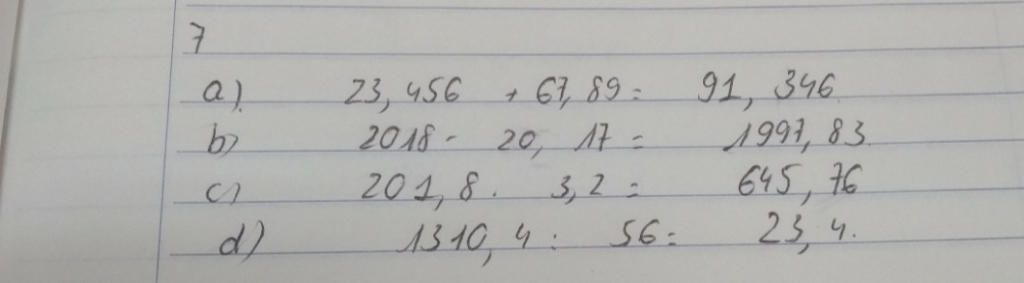 7
a) 23,456 + 67,89 = 91,346
b) 2018 - 20,17 = 1997,83
c) 201,8 . 3,2 = 645,76
d) 1310,4 : 56 = 23,4.